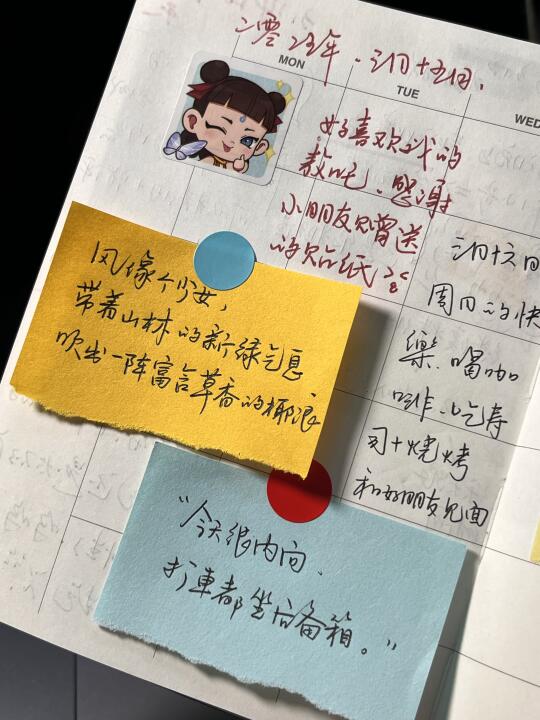 二零25年.三月十五日.
MON
TUE
WED
好喜欢我的
吒、感谢
小朋友赠送
的贴纸
风像个少女,
带着山林的新绿气息
吹出一阵富含草香的柳浪
三月十六日
周日的快
樂.喝咖
啡.吃寿
司+烧烤
和好朋友见面
“今天很内向.
打車都坐后备箱。”